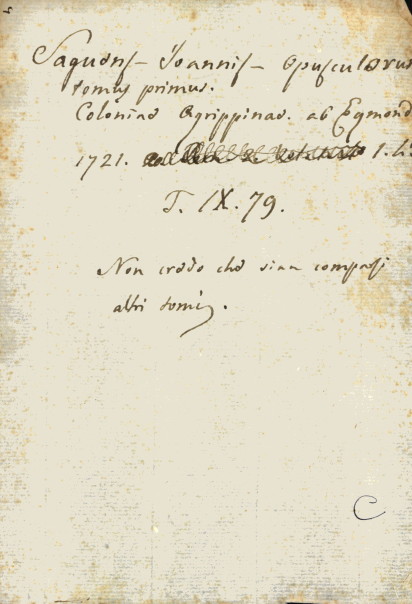 Saguens Joannis Opusculorum
tomus primus.
Coloniae Agrippinae. ab Egmond
1721. 1.
T. IX. 79.
Non credo che sian comparsi
altri tomi.
C